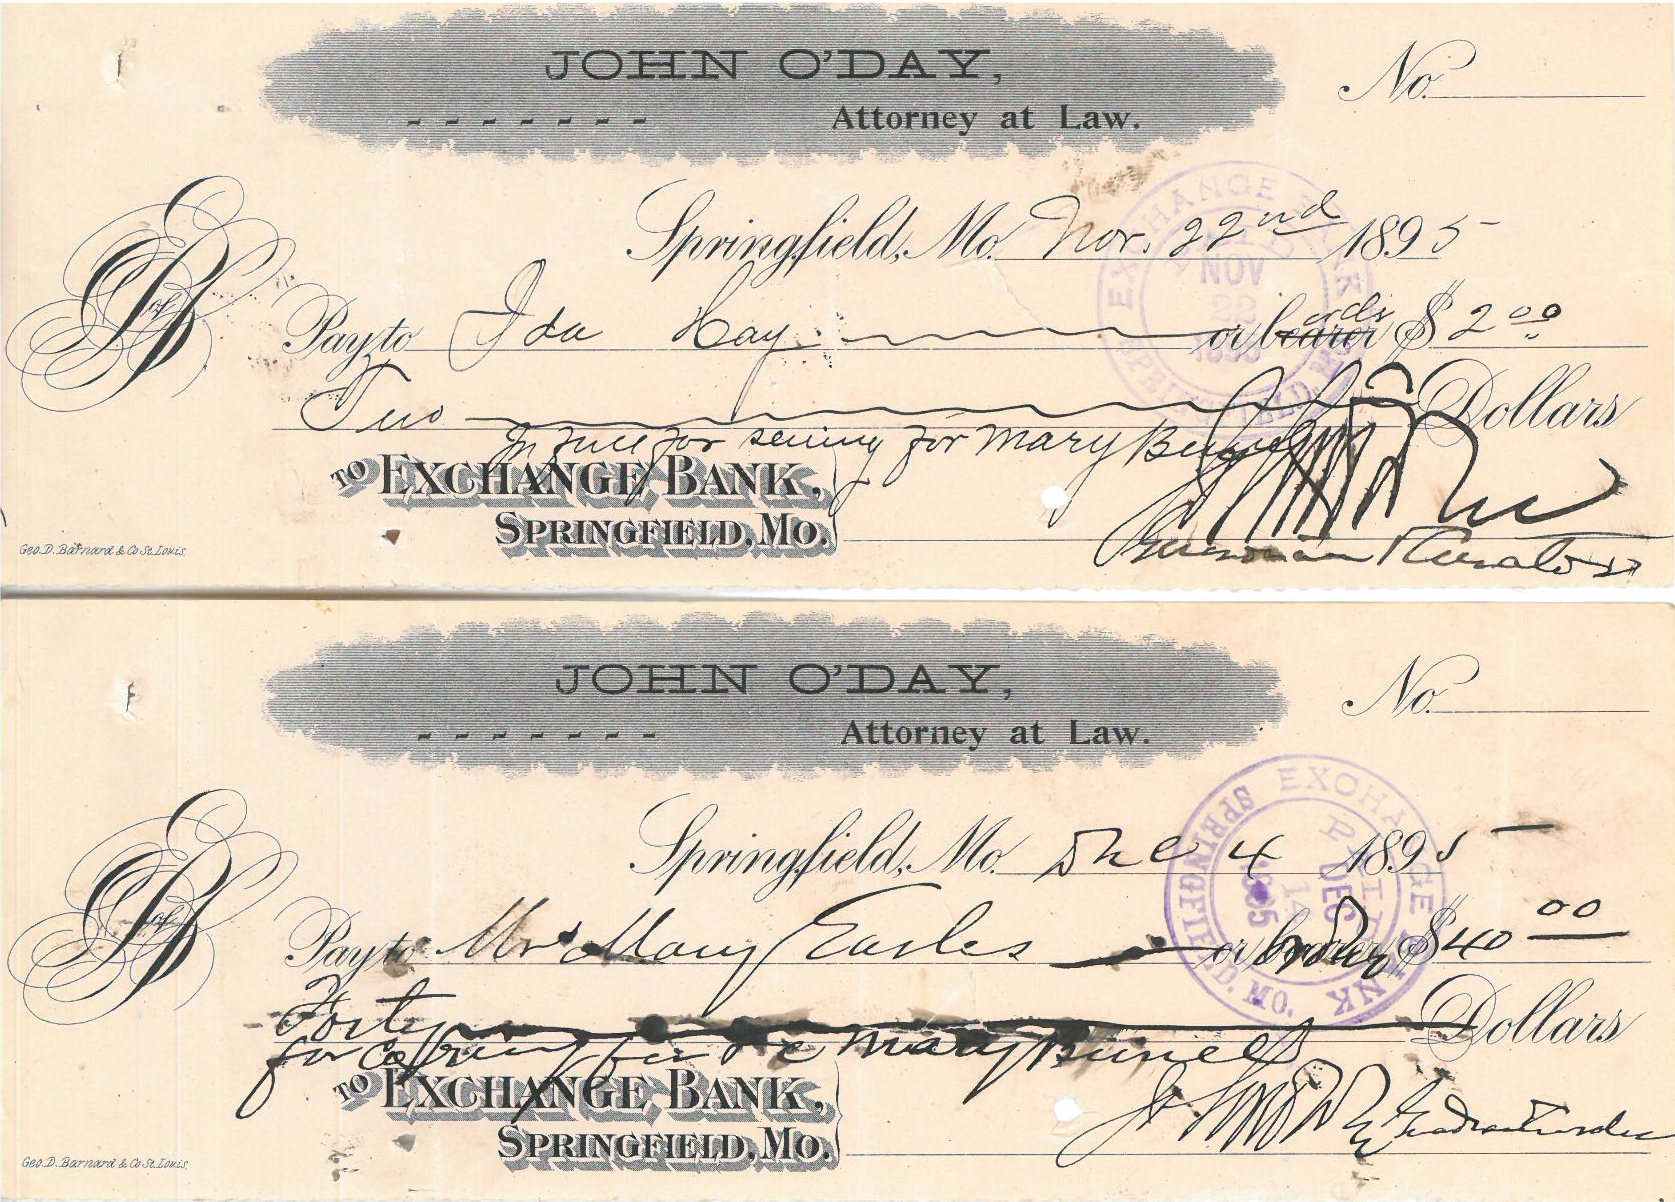 JOHN O'DAY,
- - - - - - - Attorney at Law.
No.
EXCHANGE BANK
SPRINGFIELD, MO.
PAID
NOV
22
1895
Springfield, Mo. Nov. 22nd 1895
Pay to Ida Hay or bearer order $ 2 00
Two Dollars
In full for sewing for Mary
TO EXCHANGE BANK,
SPRINGFIELD, MO.
Geo. D. Barnard & Co St. Louis.
JOHN O'DAY,
- - - - - - - Attorney at Law.
No.
EXCHANGE BANK
SPRINGFIELD, MO.
PAID
DEC
14
1895
Springfield, Mo. Dec 4 1895
Pay to Mrs Mary Earles or order $ 40 00
Forty Dollars
for Mary
TO EXCHANGE BANK,
SPRINGFIELD, MO.
Geo. D. Barnard & Co St. Louis.